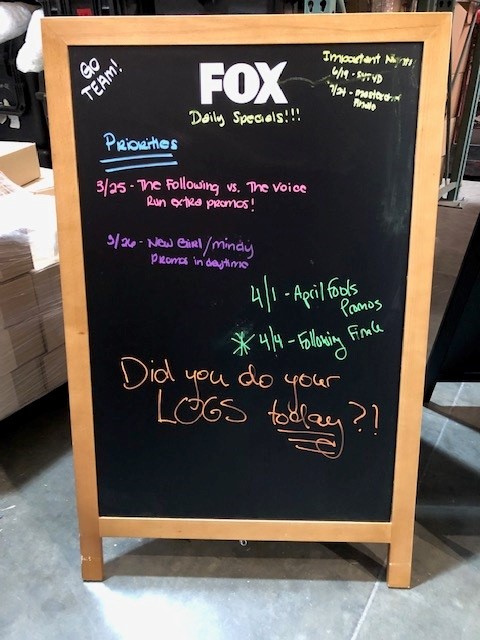 GO
TEAM!
FOX
Daily Specials!!!
Important
6/19 - SYTYD
7/24 - Masterchef
Finale
Priorities
3/25 - The Following vs. The Voice
Run extra promos!
3/26 - New Girl/mindy
Promos in daytime
4/1 - April Fools
Promos
* 4/4 - Following Finale
Did you do your
LOGS today?!